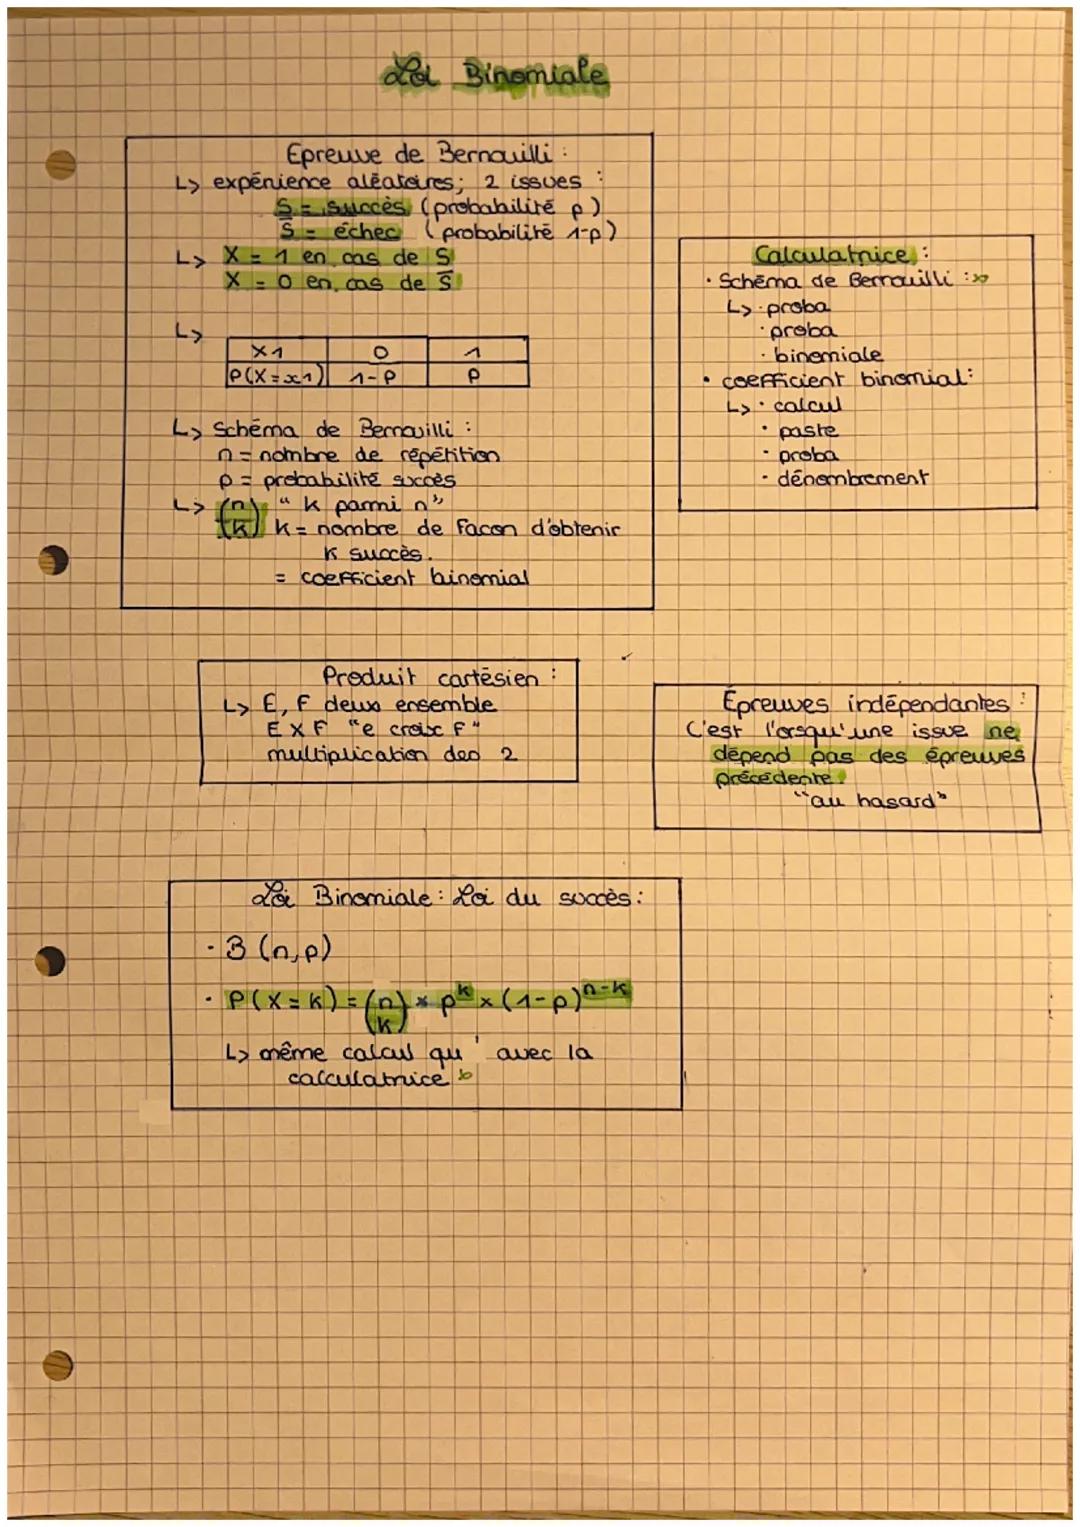 Loi Binomiale
Epreuve de Bernouilli :
↳ expérience aléatoires; 2 issues :
S = succès (probabilité p)
S̅ = échec (probabilité 1-p)
↳ X = 1 en cas de S
X = 0 en cas de S̅
↳
X1 0 1
P(X=x1) 1-P P
↳ Schéma de Bernouilli :
n = nombre de répétition
p = probabilité succès
↳ (n k) " k parmi n"
k = nombre de façon d'obtenir
k succès.
= coefficient binomial
Calculatrice :
· Schéma de Bernouilli :
↳ · proba
· proba
· binomiale
• coefficient binomial:
↳ · calcul
· paste
· proba
· dénombrement
Produit cartésien :
↳ E, F deux ensemble
E X F "e croix F"
multiplication des 2
Épreuves indépendantes :
C'est l'orsqu'une issue ne
dépend pas des épreuves
précédente.
"au hasard"
Loi Binomiale : Loi du succès :
· B (n,p)
· P(X=k) = (n k) × p^k × (1-p)^n-k
↳ même calcul qu' avec la
calculatrice